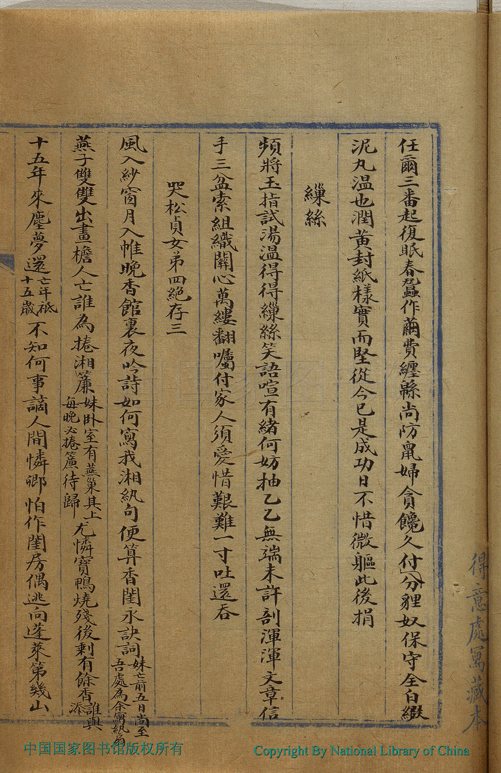 任爾三番起復眠春蠶作繭費纏緜尚防鼠婦貪饞久付分貍奴保守全白綴
泥丸溫也潤黃封紙樣實而堅從今已是成功日不惜微軀此後捐
繅絲
頻將玉指試湯溫得得繅絲笑語喧有緒何妨抽乙乙無端未許剖渾渾文章信
手三盆索組織關心萬縷翻囑付家人須愛惜艱難一寸吐還吞
哭松貞女弟四絕存三
風入紗窗月入帷晚香館裏夜吟詩如何寫我湘紈句便算香閨永訣詞妹亡前五日尚至吾處為余寫紈扇
燕子雙雙出畫檐人亡誰為捲湘簾妹臥室有燕巢其上每晚必捲簾待歸尤憐寶鴨燒殘後剩有餘香誰與添
十五年來塵夢還亡年祗十五歲不知何事謫人間憐卿怕作閨房偶逃向蓬萊第幾山
得意處寫藏本
中国国家图书馆版权所有
Copyright By National Library of China